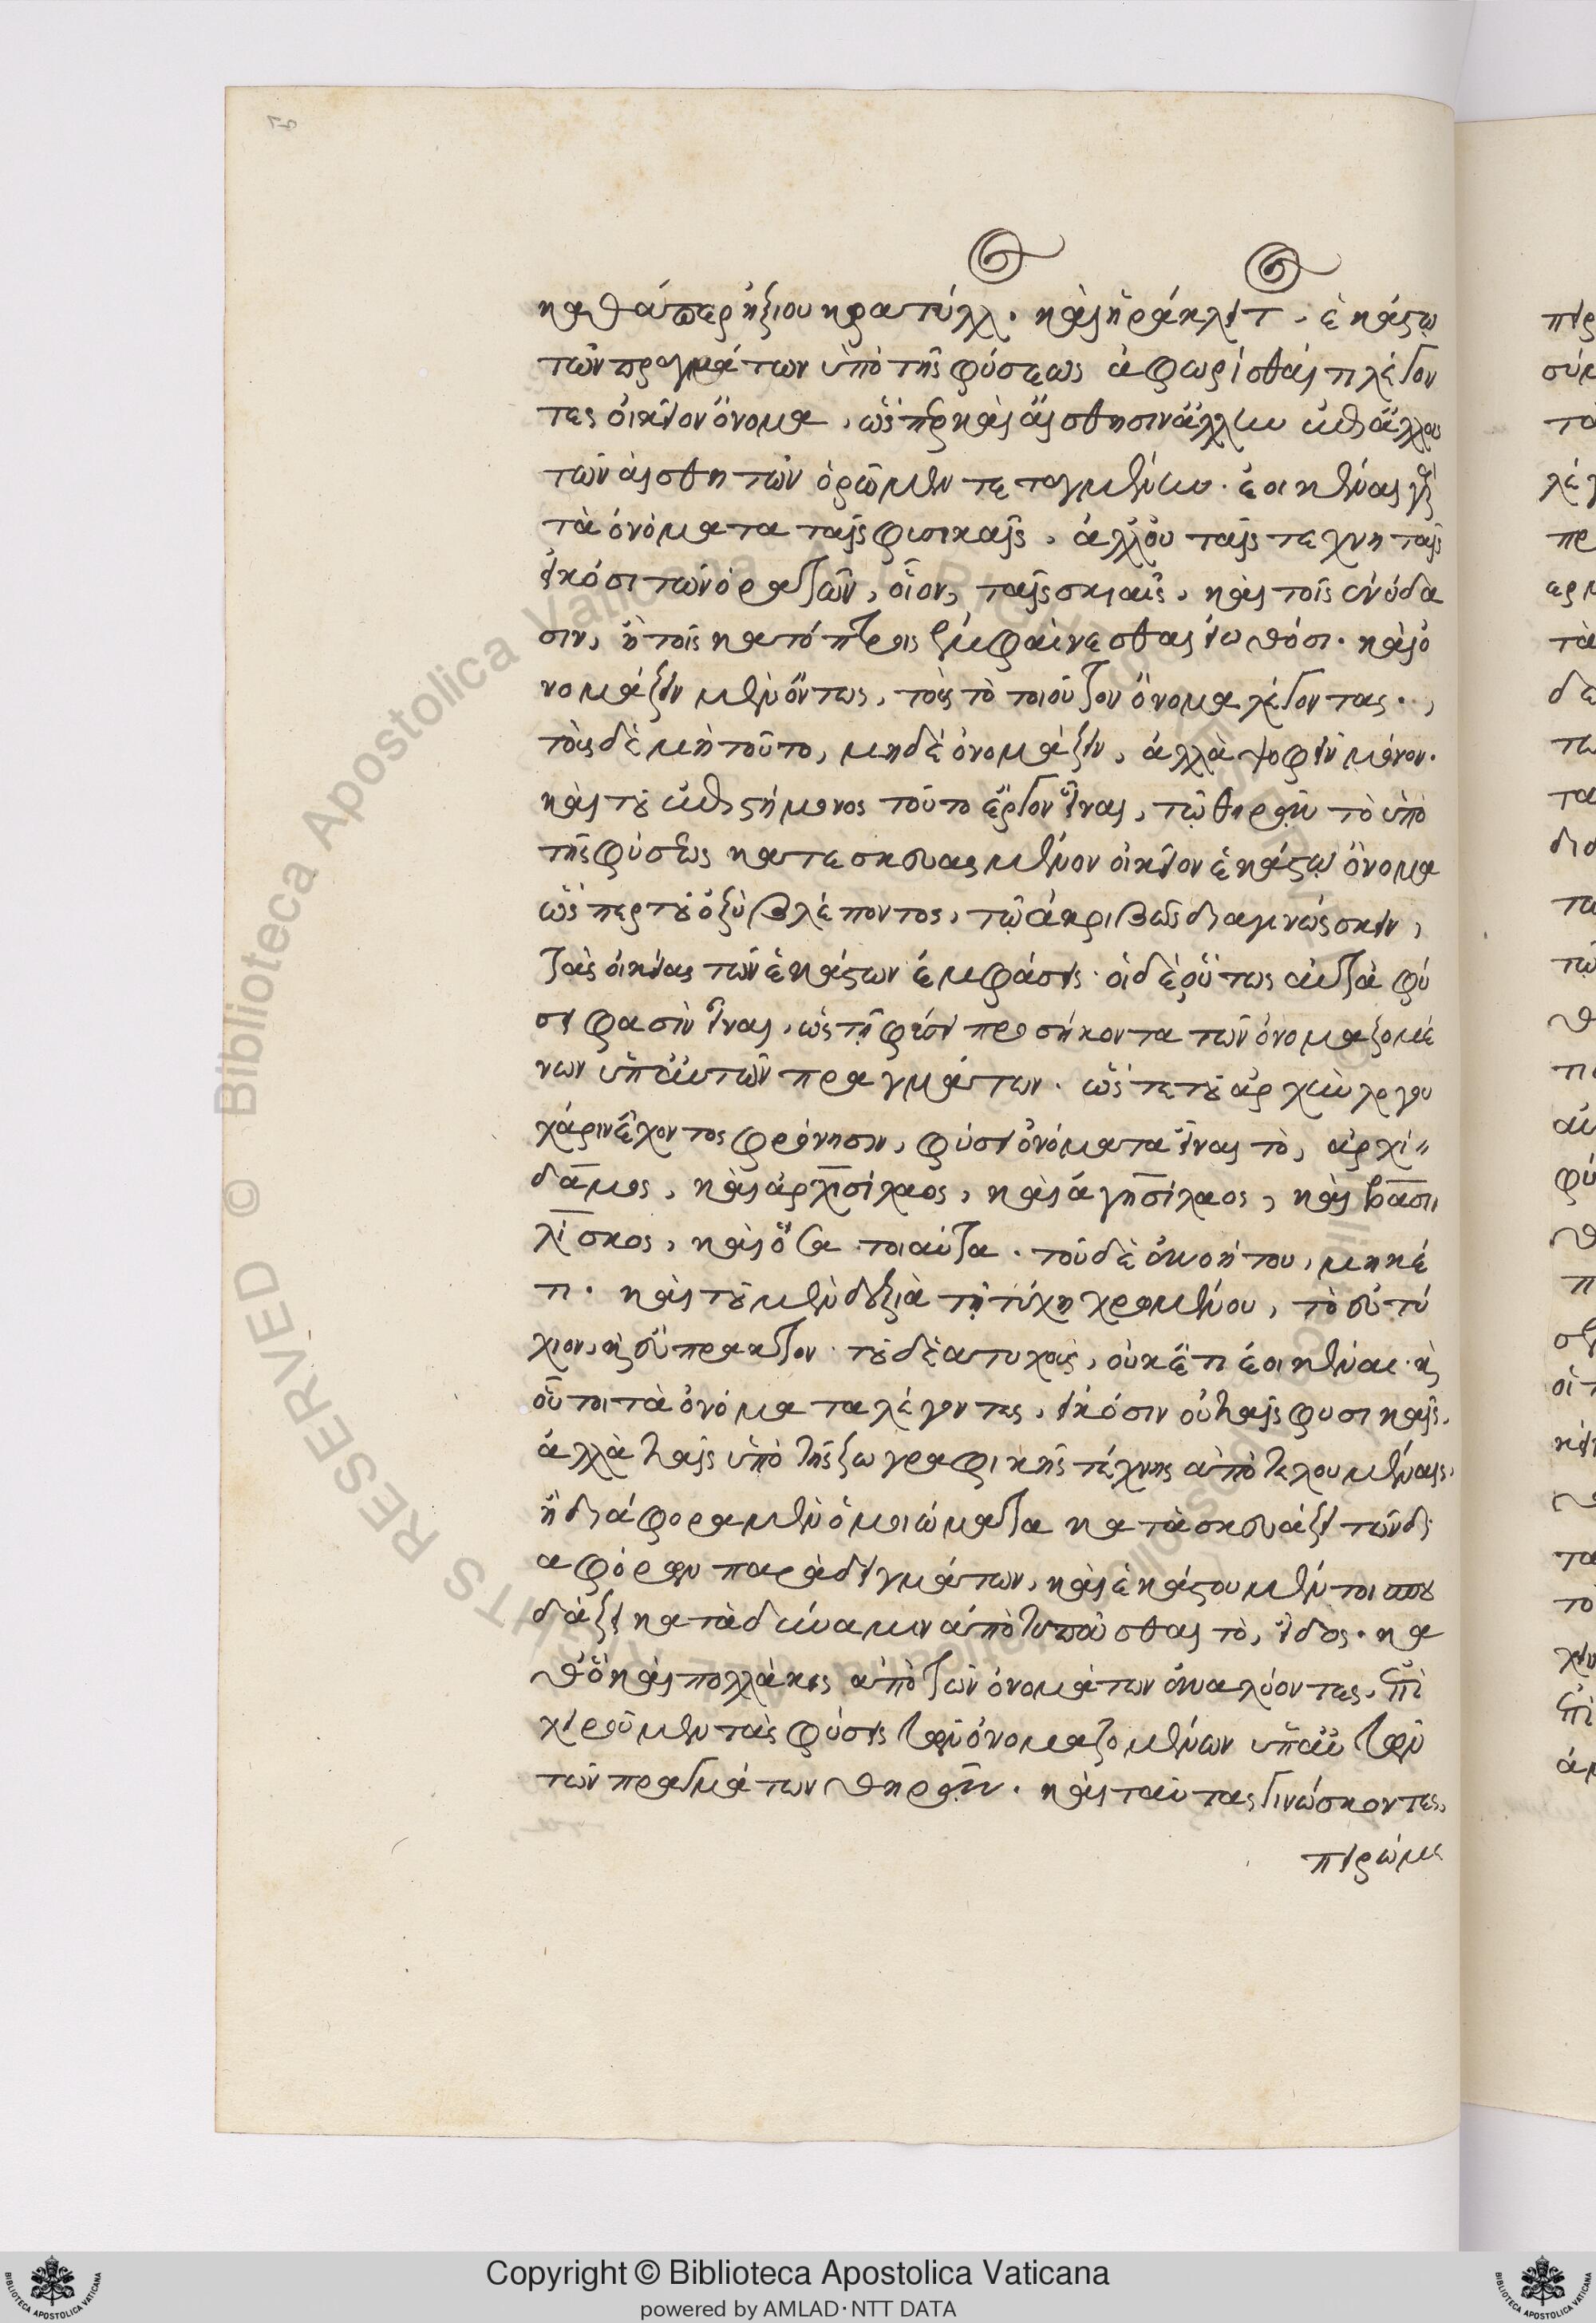 καθάπερ ἠξίου κρατύλλ. καὶ ἡράκλειτ. ἑκάστω
τῶν πραγμάτων ὑπὸ τῆς φύσεως ἀφωρίσθαι τι λέγον
τες οἰκεῖον ὄνομα, ὥσπερ καὶ αἴσθησιν ἄλλην ἐπ' ἄλλου
τῶν αἰσθητῶν ὁρῶμεν τεταγμένην. ἐοικέναι γὰρ
τὰ ὀνόματα ταῖς φυσικαῖς, ἀλλ' οὐ ταῖς τεχνηταῖς
εἰκόσι τῶν ὁρατῶν, οἷον, ταῖς σκιαῖς, καὶ τοῖς ἐν ὕδα
σιν, ἢ τοῖς κατόπτροις ἐμφαίνεσθαι εἰωθόσι. καὶ ὀ
νομάζειν μὲν ὄντως, τοὺς τὸ τοιοῦτον ὄνομα λέγοντας.,
τοὺς δὲ μὴ τοῦτο, μηδὲ ὀνομάζειν, ἀλλὰ ψοφεῖν μόνον.
καὶ τοῦ ἐπιστήμονος τοῦτο ἔργον εἶναι, τῶ θηρᾶν τὸ ὑπὸ
τῆς φύσεως κατεσκευασμένον οἰκεῖον ἑκάστω ὄνομα
ὥσπερ τοῦ ὀξὺ βλέποντος, τῶ ἀκριβῶς διαγινώσκειν,
τὰς οἰκείας τῶν ἑκάστων ἐμφάσεις. οἱ δὲ οὕτως αὐτὰ φύ
σει φασὶν εἶναι, ὡς τῇ φύσει προσήκοντα τῶν ὀνομαζομέ
νων ὑπ' αὐτῶν πραγμάτων. ὥστε τοῦ ἀρχὴν λόγου
χάριν ἔχοντος φρόνησιν, φύσει ὀνόματα εἶναι τὸ, ἀρχί-
δαμος, καὶ ἀρχισίλαος, καὶ ἀγησίλαος, καὶ βασι
λίσκος, καὶ ὅσα τοιαῦτα. τοῦ δὲ ἀνοήτου, μηκέ
τι. καὶ τοῦ μὲν δεξιὰ τῇ τύχῃ χρωμένου, τὸ εὐτύ
χιον, καὶ εὔπρακτον. τοῦ δὲ ἀτυχοῦς, οὐκέτι ἐοικέναι. καὶ
οὗτοι τὰ ὀνόματα λέγοντες, εἰκόσιν οὐ ταῖς φυσικαῖς,
ἀλλὰ ταῖς ὑπὸ τῆς ζωγραφικῆς τέχνης ἀποτελουμέναις,
ἣ διάφορα μὲν ὁμοιώματα κατασκευάζει τῶν δι
αφόρων παραδειγμάτων, καὶ ἑκάστου μέντοι σπου
δάζει κατὰ δύναμιν ἀποτυποῦσθαι τὸ, εἶδος. κα
θὸ καὶ πολλάκις ἀπὸ τῶν ὀνομάτων ἀναλύοντες, ἐπι
χειροῦμεν τὰς φύσεις τῶν ὀνομαζομένων ὑπ' αὐτῶν
τῶν πραγμάτων θηρᾶν. καὶ ταύτας γινώσκοντες,
πειρώμε